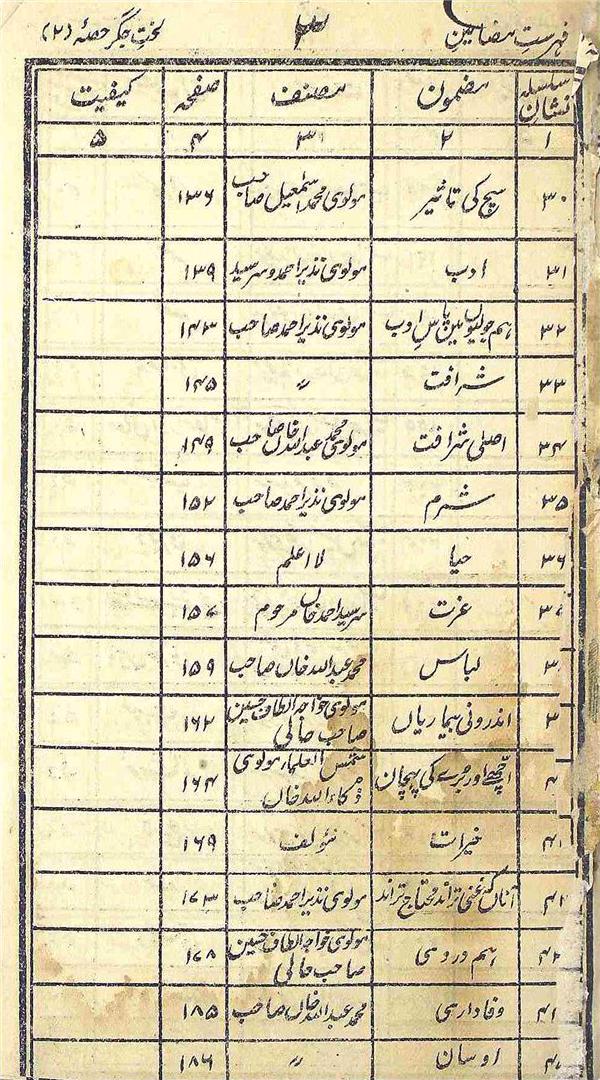 فہرست مضامین ۳ لخت جگر حصہ (۲)
سلسلہ نشان مضمون مصنف صفحہ کیفیت
۱ ۲ ۳ ۴ ۵
۳۰ سچ کی تاثیر مولوی محمد اسمٰعیل صاحب ۱۳۶
۳۱ ادب مولوی نذیر احمد و سرسید ۱۳۹
۳۲ ہم جولیوں میں پاس ادب مولوی نذیر احمد صاحب ۱۴۳
۳۳ شرافت 〃 ۱۴۵
۳۴ اصلی شرافت مولوی محمد عبداللہ خاں صاحب ۱۴۹
۳۵ شرم مولوی نذیر احمد صاحب ۱۵۲
۳۶ حیا لا اعلم ۱۵۶
۳۷ عزت سرسید احمد خاں مرحوم ۱۵۷
۳ لباس محمد عبداللہ خاں صاحب ۱۵۹
۳ اندرونی بیماریاں مولوی خواجہ الطاف حسین صاحب حالی ۱۶۲
۴ اچھے اور برے کی پہچان شمس العلماء مولوی ذکاء اللہ خاں ۱۶۴
۴۱ خیرات مؤلف ۱۶۹
۴۲ آناں کہ غنی تراند محتاج تراند مولوی نذیر احمد صاحب ۱۷۳
۴۳ ہم دردی مولوی خواجہ الطاف حسین صاحب حالی ۱۷۸
۴ وفاداری محمد عبداللہ خاں صاحب ۱۸۵
۴ اوسان 〃 ۱۸۶